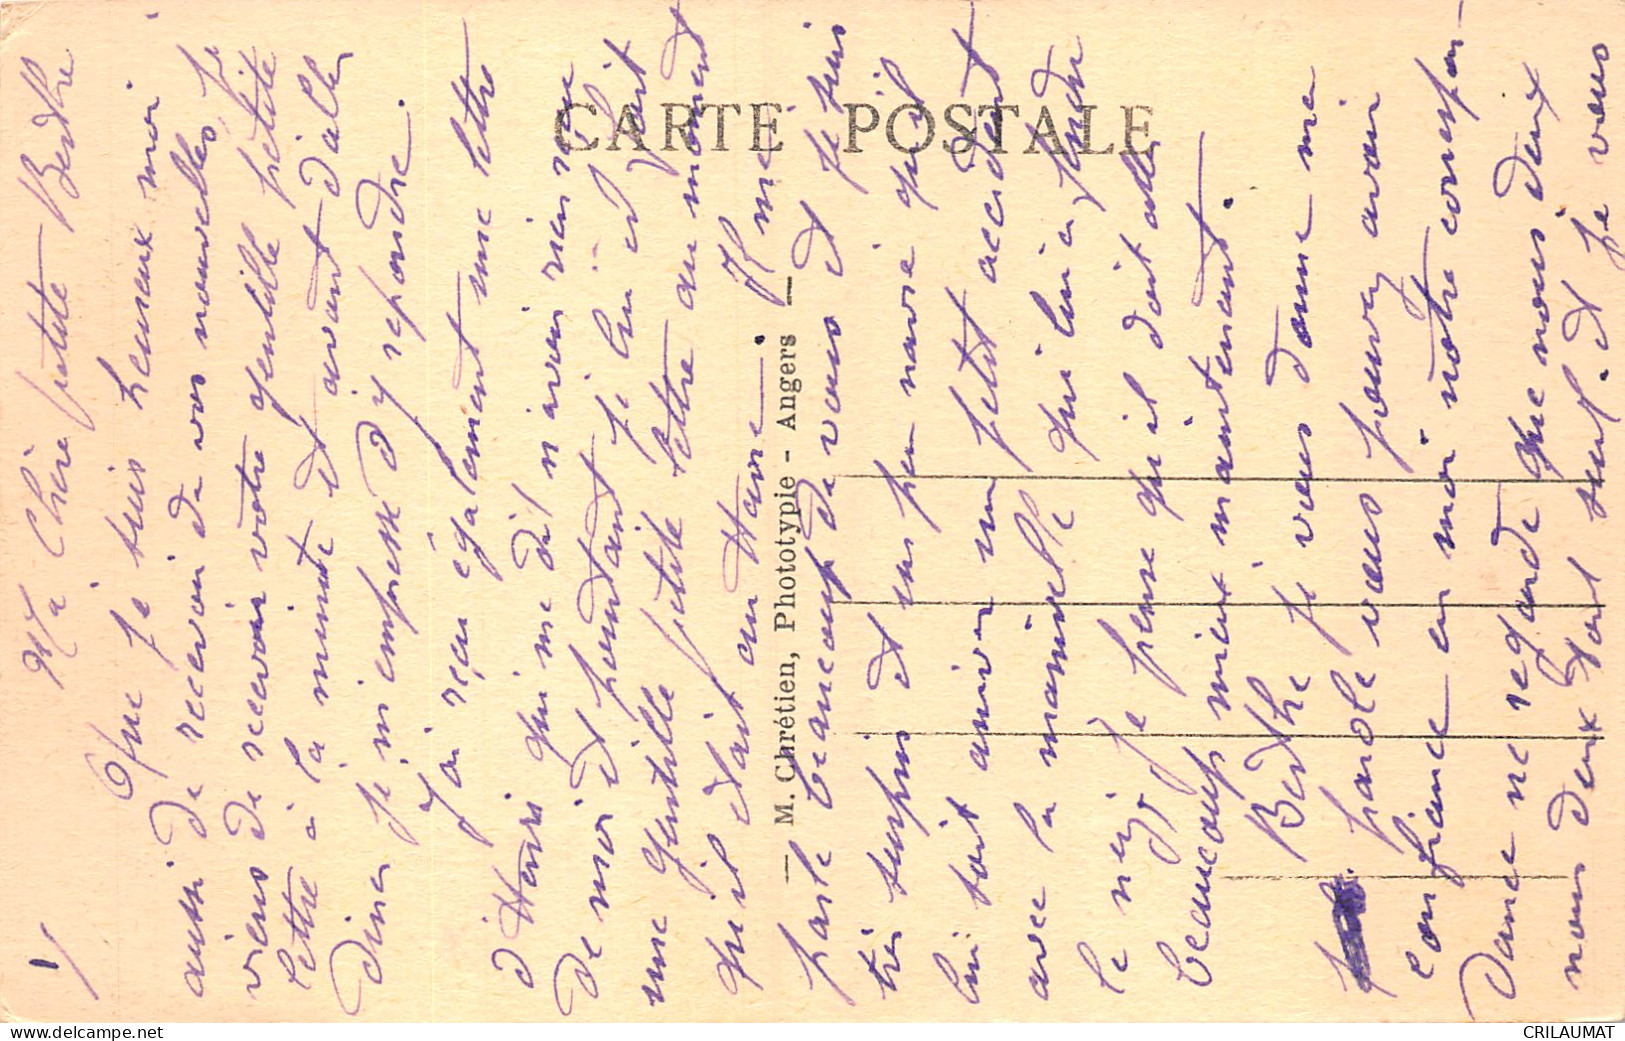 1/
Ma Chère petite Berthe
Que je suis heureux moi
aussi de recevoir de vos nouvelles je
viens de recevoir votre gentille petite
lettre à la minute et avant d'aller
diner je m'empresse d'y repondre.
J'ai reçu également une lettre
d'Henri qui me dit n'avoir rien reçu
de moi et pourtant je lui ai fait
une gentille petite lettre au moment
qu'il était au Havre. Il me
parle beaucoup de vous et je suis
très surpris et un peu navré qu'il
lui soit arriver un petit accident
avec la manivelle qui lui a fendu
le nez, je pense qu'il doit aller
beaucoup mieux maintenant.
Berthe je vous donne ma
parole vous pouvez avoir
confiance en moi notre correspon-
dance ne regarde que nous deux
nous deux tout seul. et je vous
CARTE POSTALE
— M. Chrétien, Phototypie - Angers —
CRILAUMAT